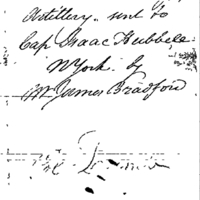 Artillery. sent to
Cap Isaac Hubbell
N York by
Mr James Bradford